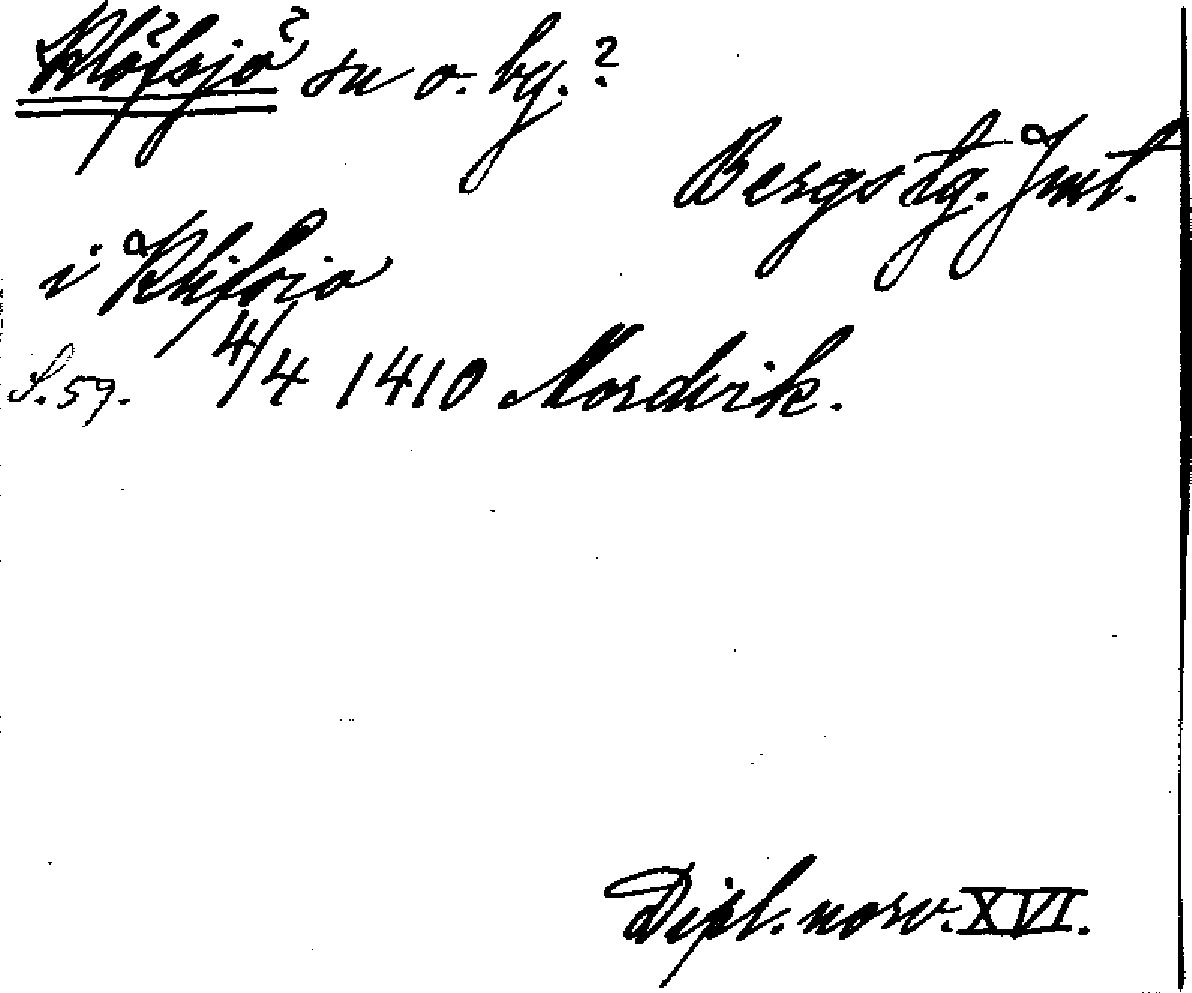 Klöfsjö sn o. by.?
Bergs tg. Jmt.
i Klifsio
S. 59. 4/4 1410 Mordvik.
Dipl. norv. XVI.